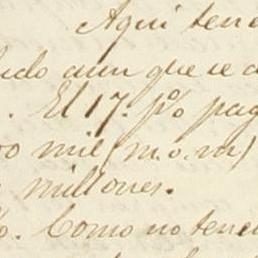 Aqui tene
udo aun que se a
. El 17. p% pag
00 mil (m.o.m)
millones.
%. Como no tene